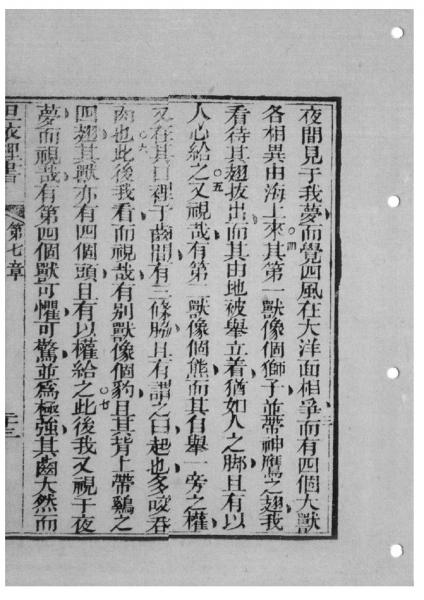 夜間見于我夢而覺四風在大洋面相爭而有四個大獸
三
各相異由海上來其第一獸像個獅子並帶神鷹之翅我
四
看待其翅拔出而其由地被舉立着猶如人之脚且有以
人心給之又視哉有第二獸像個熊而其自舉一旁之權
五
又在其口裡于齒間有三條脇且有謂之曰起也多咬吞
肉也此後我看而視哉有別獸像個豹且其背上帶鷄之
六
四翅其獸亦有四個頭且有以權給之此後我又視于夜
七
夢而視哉有第四個獸可懼可驚並為極強其齒大然而
但依理書 第七章 二十三